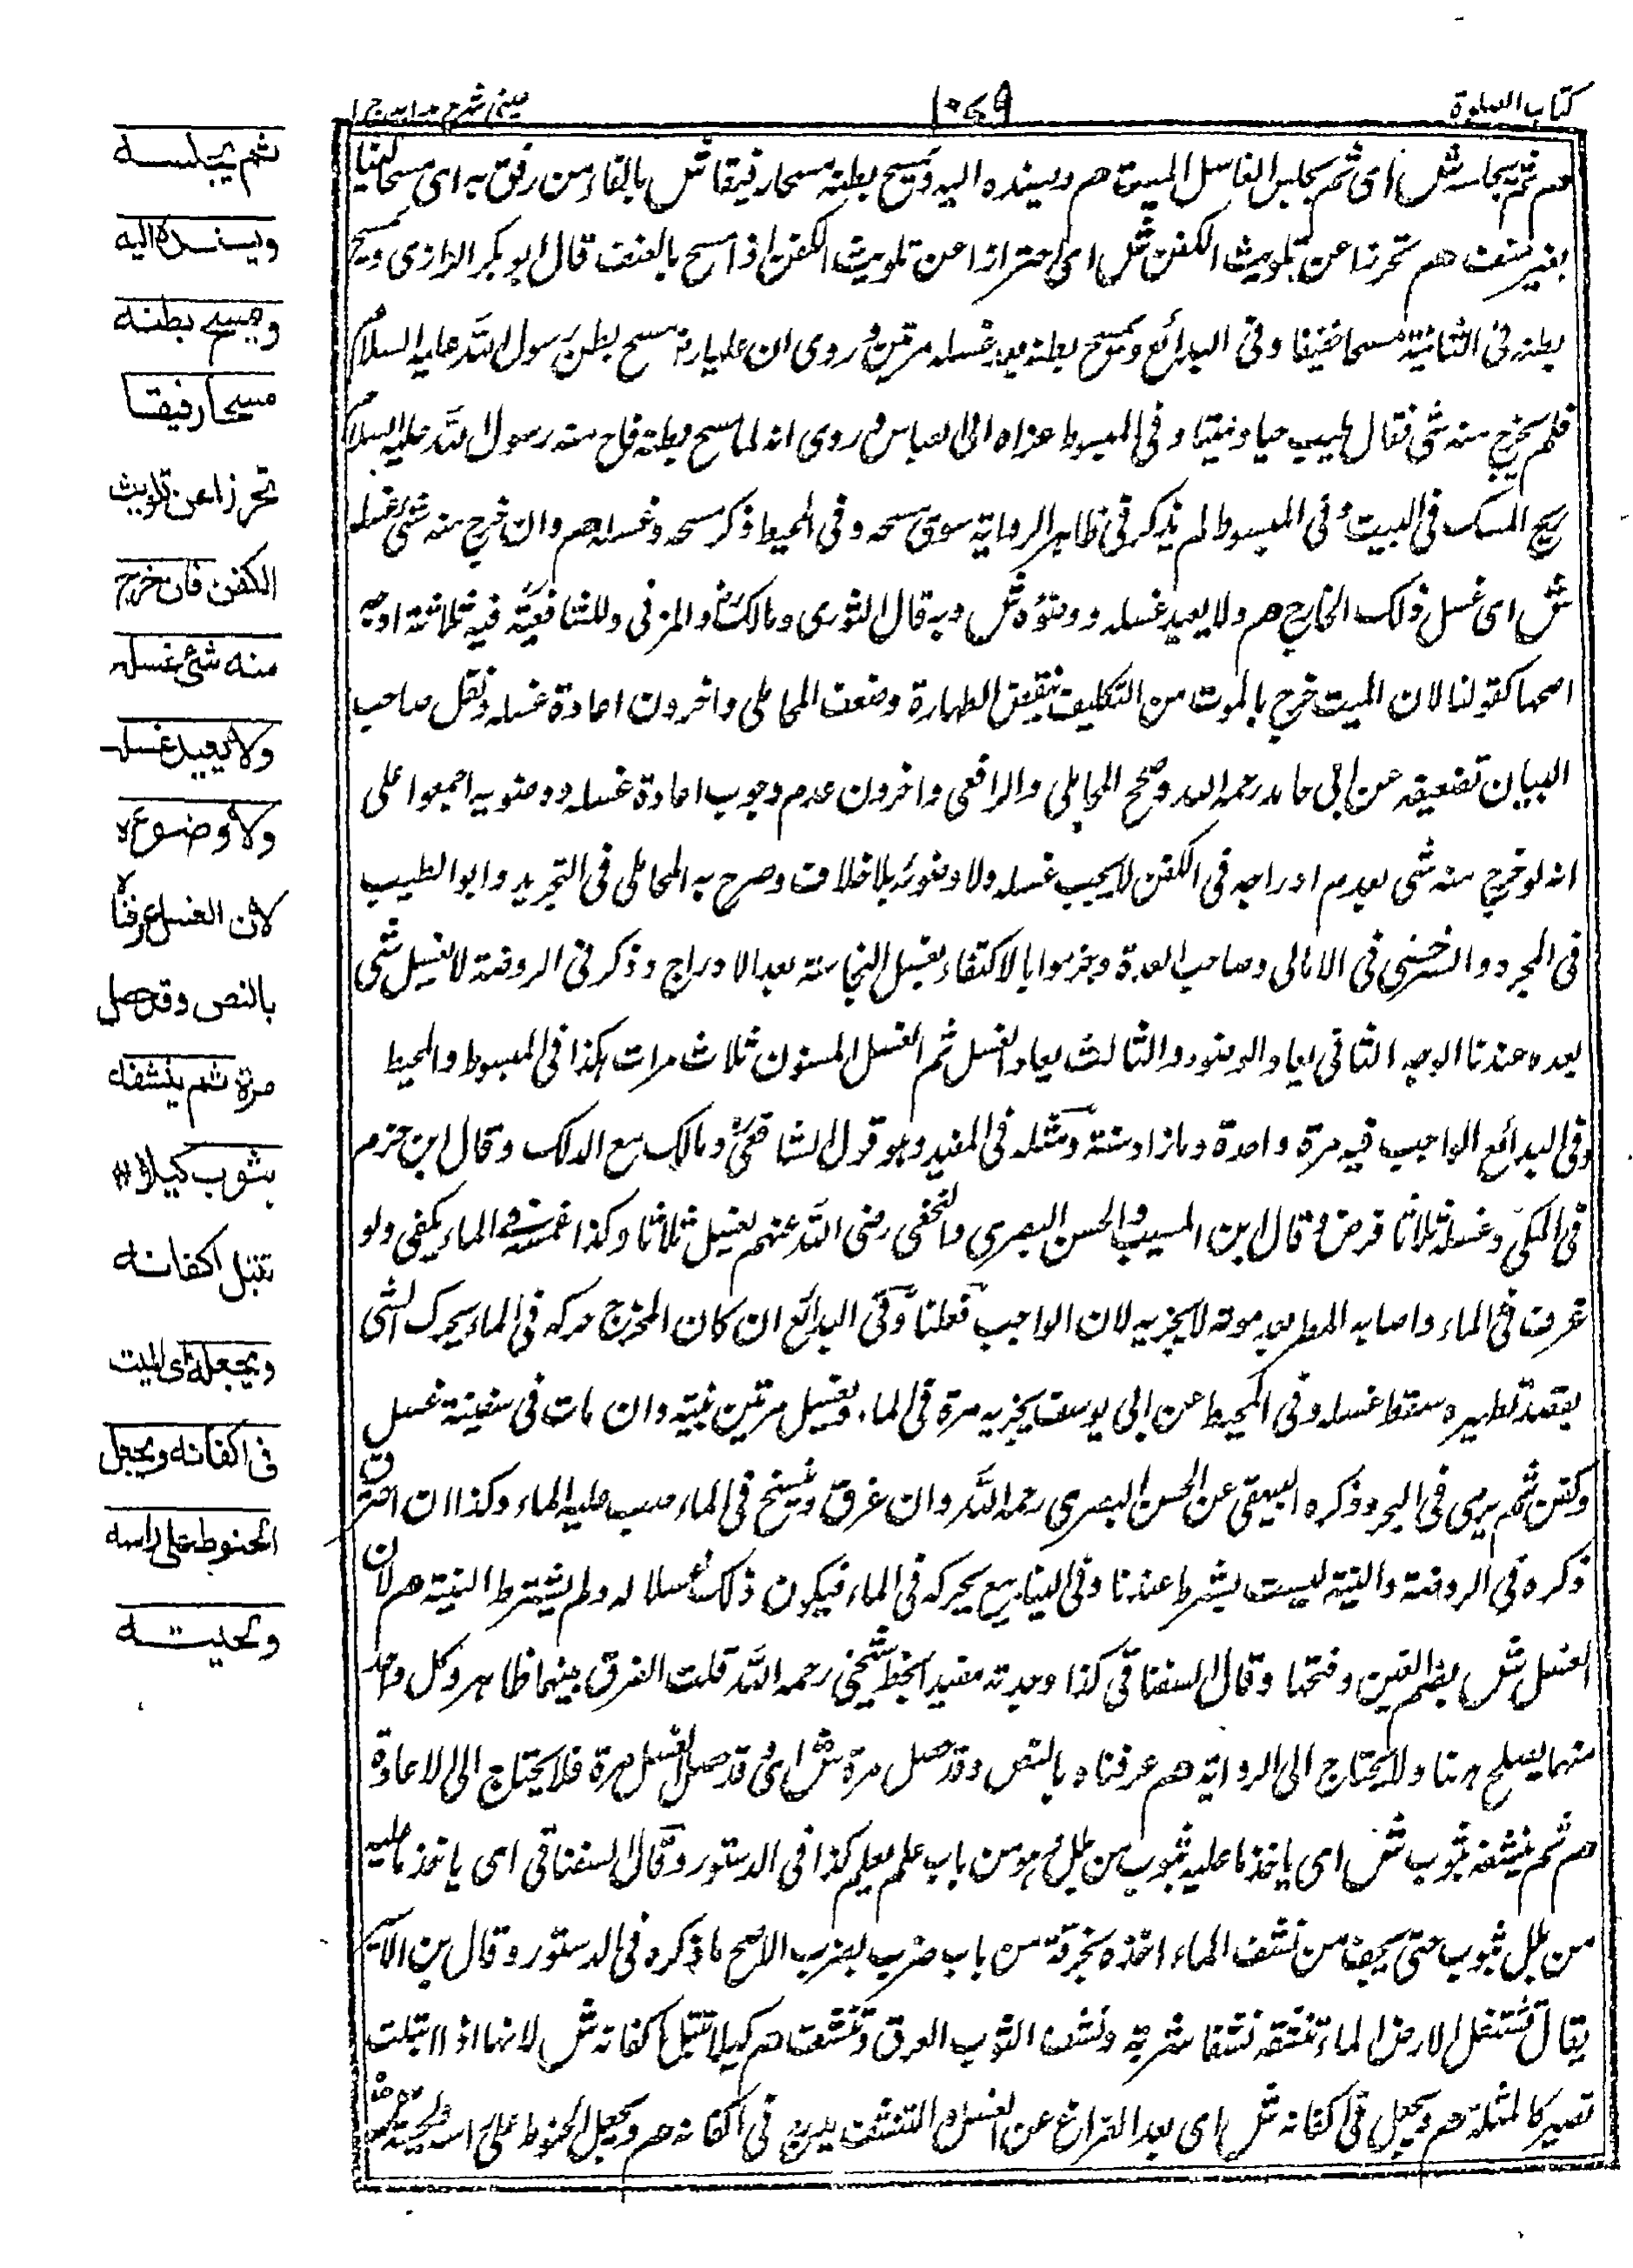 كتاب الصلوة
١٠٧٩
عينى شرح هدايه ج ١
هم ثم يجلسه ش اى ثم يجلس الغاسل الميت هم ويسنده اليه ويمسح بطنه مسحا رفيقا ش بالفاء من رفق به اى مسحا لينا
بغير عنف هم تحرزا عن تلويث الكفن ش اى احترازا عن تلويث الكفن اذا مسح بالعنف قال ابو بكر الرازى ويمسح
بطنه فى الثانية مسحا خفيفا وفى البدائع ويمسح بطنه بعد غسله مرتين وروى ان عليا رض مسح بطن رسول الله عليه السلام
فلم يخرج منه شى فقال طيب حيا وميتا وفى المبسوط عزاه الى العباس وروى انه لما مسح بطنه فاح منه رسول الله عليه السلام
ريح المسك فى البيت وفى المبسوط لم يذكر فى ظاهر الرواية سوى مسحه وفى المحيط ذكر مسحه وغسله هم وان خرج منه شى غسله
ش اى غسل ذلك الخارج هم ولا يعيد غسله ووضوءه ش وبه قال الثورى ومالك والمزنى وللشافعية فيه ثلاثة اوجه
اصحها كقولنا لان الميت خرج بالموت من التكليف بنقض الطهارة وضعف المحاملى واخرون اعادة غسله ونقل صاحب
البيان تضعيفه عن ابى حامد رحمه الله وصحح المحاملى والرافعى واخرون عدم وجوب اعادة غسله ووضوءه اجمعوا على
انه لو خرج منه شى بعد ادراجه فى الكفن لا يجب غسله ولا وضوئه بلا خلاف وصرح به المحاملى فى التجريد وابو الطيب
فى المجرد والسرخسى فى الامالى وصاحب العدة وجزموا بالاكتفاء بغسل النجاسة بعد الادراج وذكر فى الروضة لا يغسل شى
بعده عندنا الوجه الثانى يعاد الوضوء والثالث يعاد الغسل ثم الغسل المسنون ثلاث مرات هكذا فى المبسوط والمحيط
وفى البدائع الواجب فيه مرة واحدة وما زاد سنة ومثله فى المفيد وهو قول الشافعى ومالك مع الدلك وقال ابن حزم
فى المحلى وغسله ثلاثا فرض وقال ابن المسيب والحسن البصرى والنخعى رضى الله عنهم يغسل ثلاثا وكذا غمسة فى الماء يكفى ولو
غرق فى الماء واصابه المطر بعد موته لا يجزيه لان الواجب فعلنا وفى البدائع ان كان المخرج حركه فى الماء يحرك الشى
بقصد تطهيره سقط غسله وفى المحيط عن ابى يوسف يجزيه مرة فى الماء ويغسل مرتين نيته وان مات فى سفينة غسل
وكفن ثم يرمى فى البحر وذكره البيهقى عن الحسن البصرى رحمه الله وان غرق وتفسخ فى الماء صب عليه الماء وكذا ان احترق
ذكره فى الروضة والنية ليست بشرط عندنا وفى الينابيع يحركه فى الماء فيكون ذلك غسلا له ولم يشترط النية هم لان
الغسل ش بضم الغين وفتحها وقال السغناقى كذا وجدته مقيدا بخط شيخى رحمه الله قلت الفرق بينهما ظاهر وكل واحد
منهما يصلح هنا ولا يحتاج الى الرواية هم عرفناه بالنص وقد حصل مرة ش اى وقد حصل الغسل مرة فلا يحتاج الى الاعادة
هم ثم ينشفه بثوب ش اى ياخذ ما عليه بثوب من بلل وهو من باب علم يعلم كذا فى الدستور وقال السغناقى اى ياخذ ما عليه
من بلل بثوب حتى يجف من نشف الماء اخذه بخرقة من باب ضرب يضرب الاصح ما ذكره فى الدستور وقال ابن الاثير
يقال نشفت الارض الماء تنشفه نشفا شربته ونشف الثوب العرق وتنشفت هم كيلا تبتل اكفانه ش لانها اذا ابتلت
تصير كالمثلة هم ويجعل فى اكفانه ش اى بعد الفراغ عن الغسل والتنشف يدرج فى اكفانه هم ويجعل الحنوط على راسه ولحيته
ثم يجلسه
ويسنده اليه
ويمسح بطنه
مسحا رفيقا
تحرزا عن تلويث
الكفن فان خرج
منه شئ غسله
ولا يعيد غسله
ولا وضوءه
لان الغسل عرفناه
بالنص وقد حصل
مرة ثم ينشفه
بثوب كيلا
تبتل اكفانه
ويجعله اى الميت
فى اكفانه ويجعل
الحنوط على راسه
ولحيته